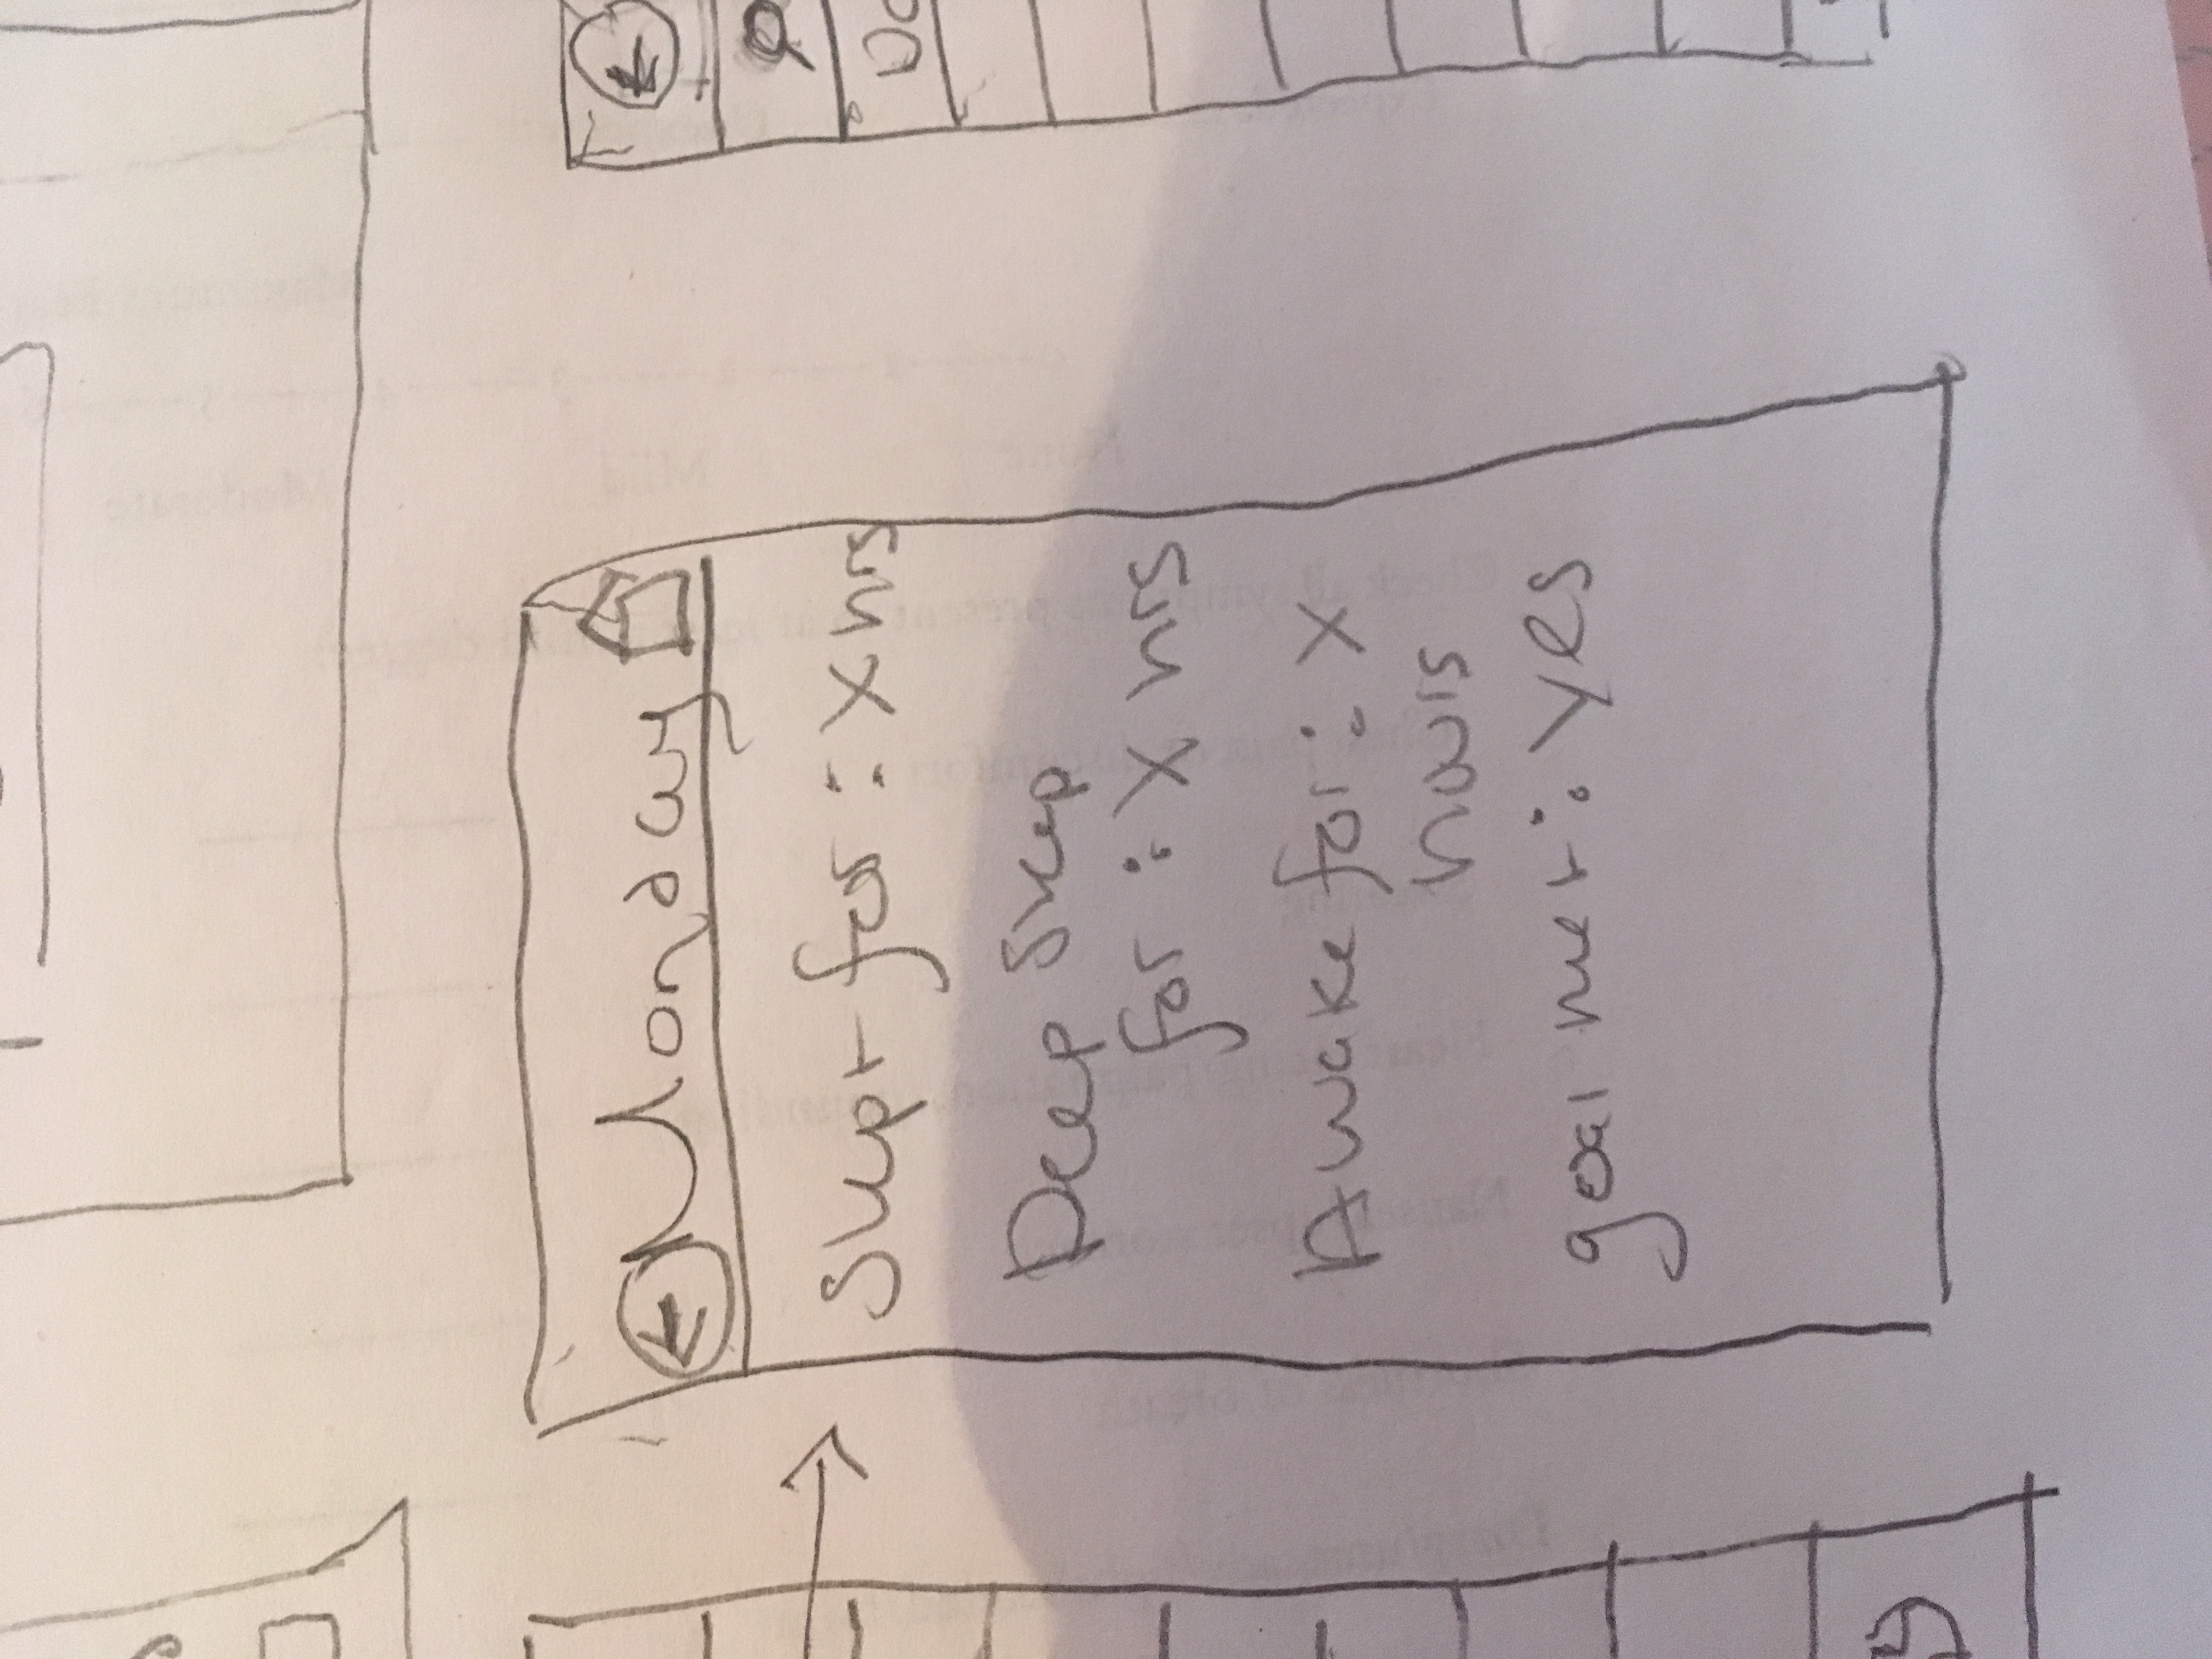 Monday
Slept for : X hrs
Deep Sleep
for : X hrs
Awake for : X
hours
goal met : yes